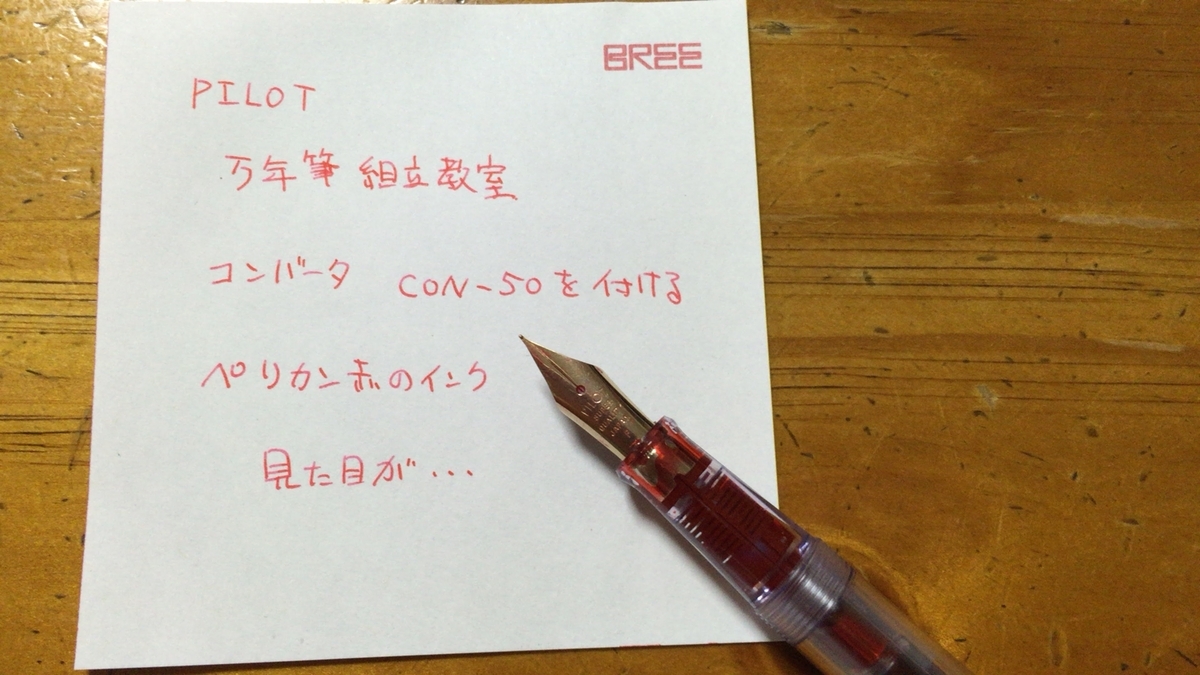 BREE
PILOT
万年筆 組立教室
コンバータ CON-50を付ける
ペリカン赤のインク
見た目が...